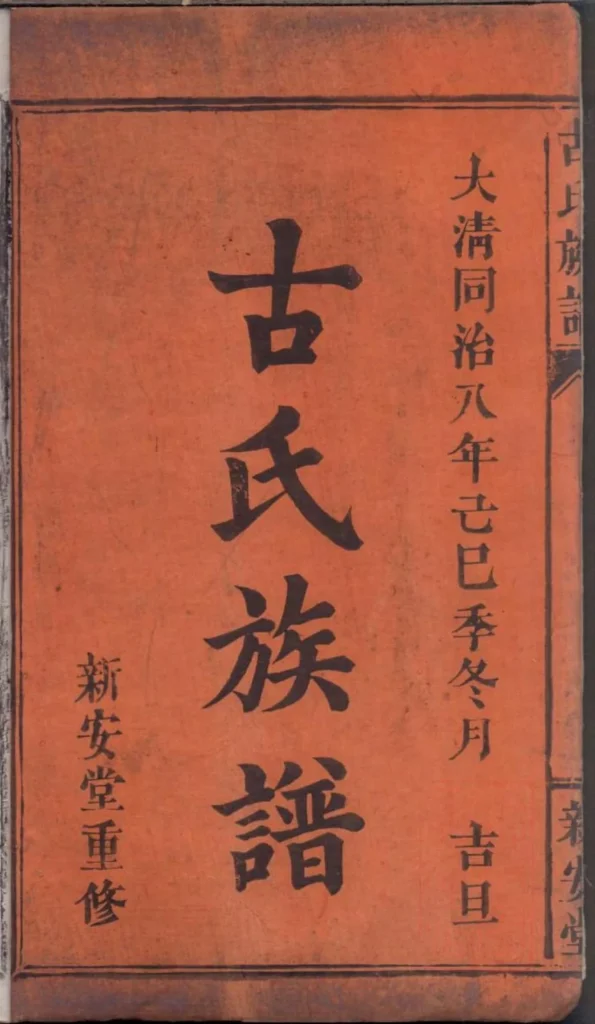 古氏族譜
新安堂
大清同治八年己巳季冬月 吉旦
古氏族譜
新安堂重修